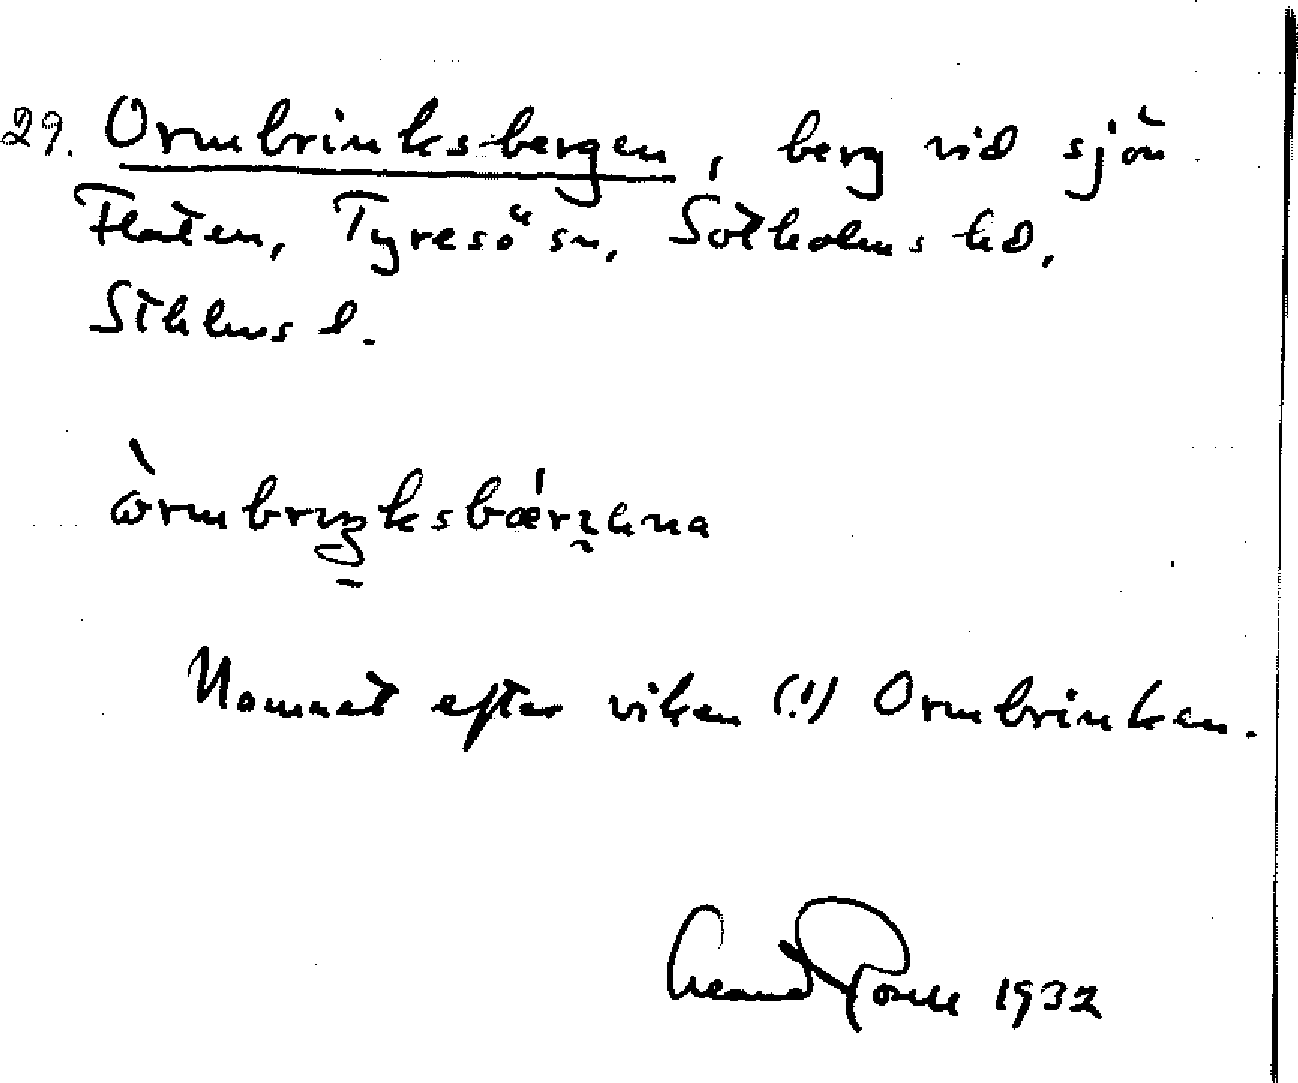 29. Ormbrinksbergen, berg vid sjön
Flaten, Tyresö sn, Sotholms hd,
Sthlms l.
òrmbrıŋksbǽrɣena
Namnet efter viken (!) Ormbrinken.
1932